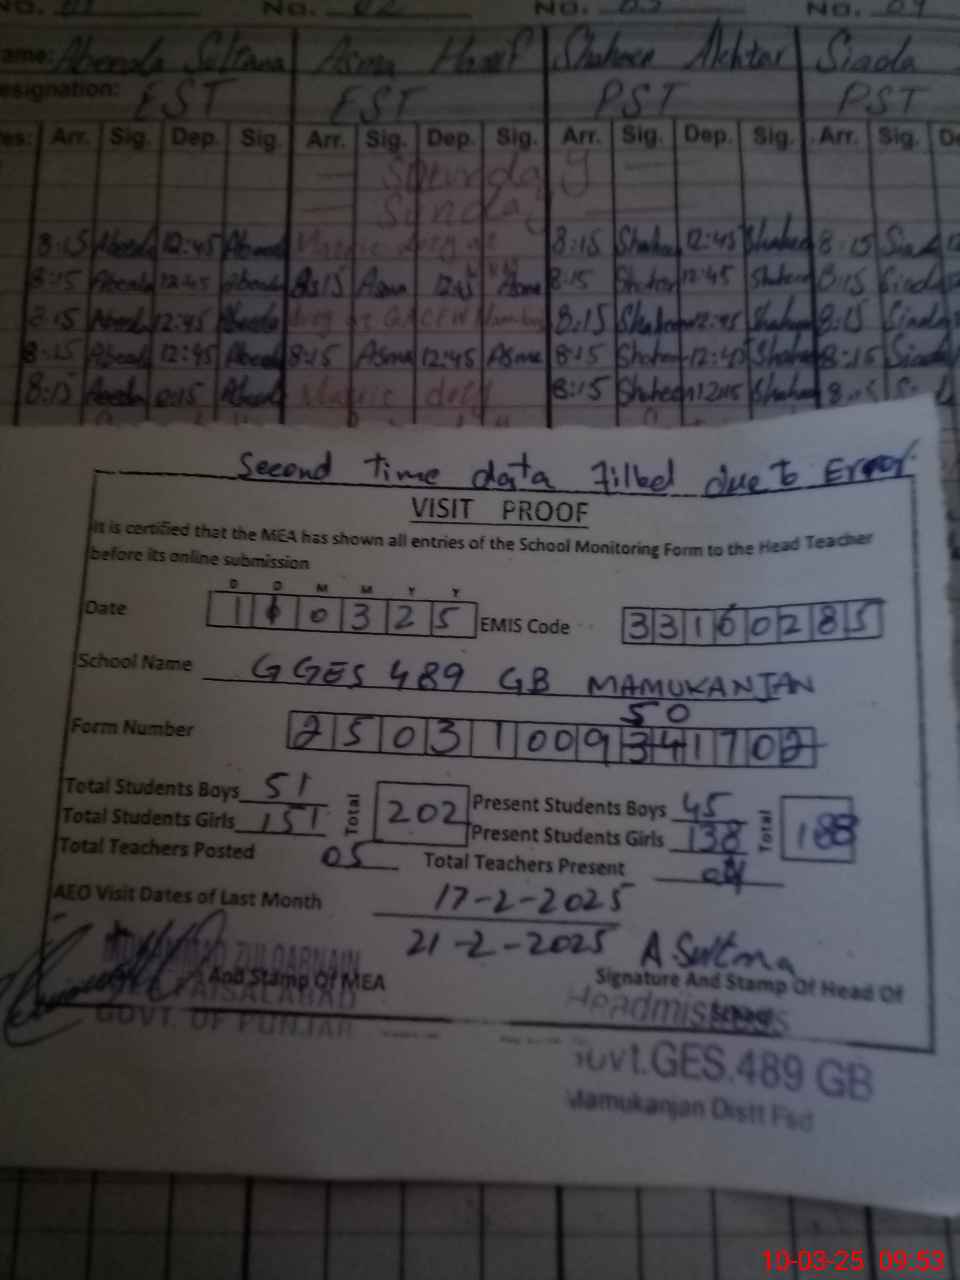 No. 01 No. 02 No. 03 No. 04
ame: Abeeda Sultana Asma Hanif Shaheen Akhtar Siada
esignation: EST EST PST PST
es: Arr. Sig. Dep. Sig. Arr. Sig. Dep. Sig. Arr. Sig. Dep. Sig. Arr. Sig. De
Saturday
Sunday
8:15 Abeeda 12:45 Abeeda Matric duty at 8:15 Shaheen 12:45 Shaheen 8:15 Siada 12
8:15 Abeeda 12:45 Abeeda 8:15 Asma 12:45 Asma 8:15 Shaheen 12:45 Shaheen 8:15 Siada
8:15 Abeeda 12:45 Abeeda duty at 8:15 Shaheen 12:45 Shaheen 8:15 Siada
8:15 Abeeda 12:45 Abeeda 8:15 Asma 12:45 Asma 8:15 Shaheen 12:45 Shaheen 8:15 Siada
8:15 Abeeda Abeeda Matric duty 8:15 Shaheen 12:15 Shaheen
Second time data filled due to Error
VISIT PROOF
It is certified that the MEA has shown all entries of the School Monitoring Form to the Head Teacher
before its online submission
D D M M Y Y
Date 1 0 0 3 2 5 EMIS Code 3 3 1 6 0 2 8 5
School Name GGES 489 GB MAMUKANJAN
50
Form Number 2 5 0 3 1 0 0 9 3 4 1 7 0 2
Total Students Boys 51 Total 202 Present Students Boys 45 Total 183
Total Students Girls 151 Present Students Girls 138
Total Teachers Posted 05 Total Teachers Present 04
AEO Visit Dates of Last Month 17-2-2025
21-2-2025 A Sultana
MUHAMMAD ZULQARNAIN
And Stamp Of MEA Signature And Stamp Of Head Of
FAISALABAD Headmistress
GOVT. OF PUNJAB
Govt.GES.489 GB
Mamukanjan Distt Fsd
10-03-25 09:53